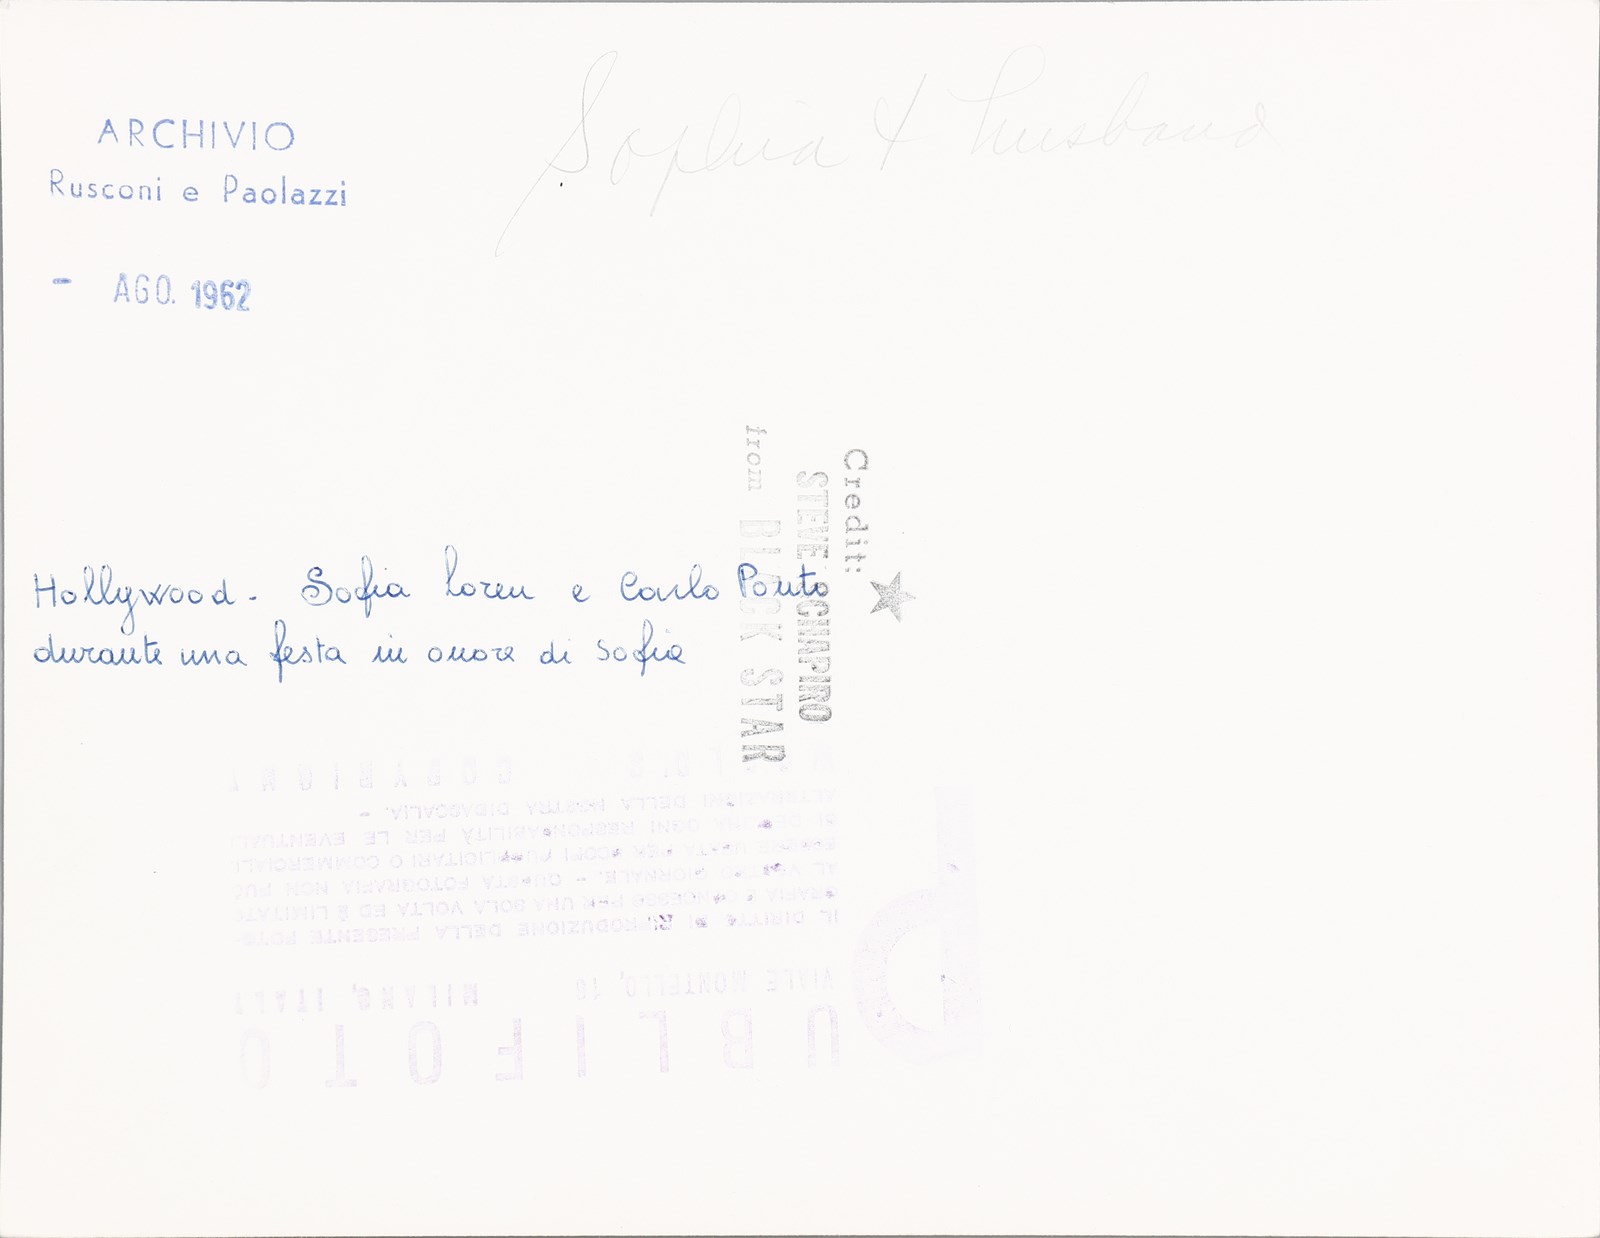 Sophia & husband
ARCHIVIO
Rusconi e Paolazzi
- AGO. 1962
Credit:
STEVE SCHAPIRO
from BLACK STAR
Hollywood - Sofia Loren e Carlo Ponto
durante una festa in onore di Sofia
PUBLIFOTO
VIALE MONTELLO, 10 MILANO, ITALY
IL DIRITTO DI RIPRODUZIONE DELLA PRESENTE FOTO-
GRAFIA È CONCESSO PER UNA SOLA VOLTA ED È LIMITATO
AL VOSTRO GIORNALE. - QUESTA FOTOGRAFIA NON PUÒ
ESSERE USATA PER SCOPI PUBBLICITARI O COMMERCIALI
SI DECLINA OGNI RESPONSABILITÀ PER LE EVENTUALI
ALTERAZIONI DELLA NOSTRA DIDASCALIA. -
COPYRIGHT